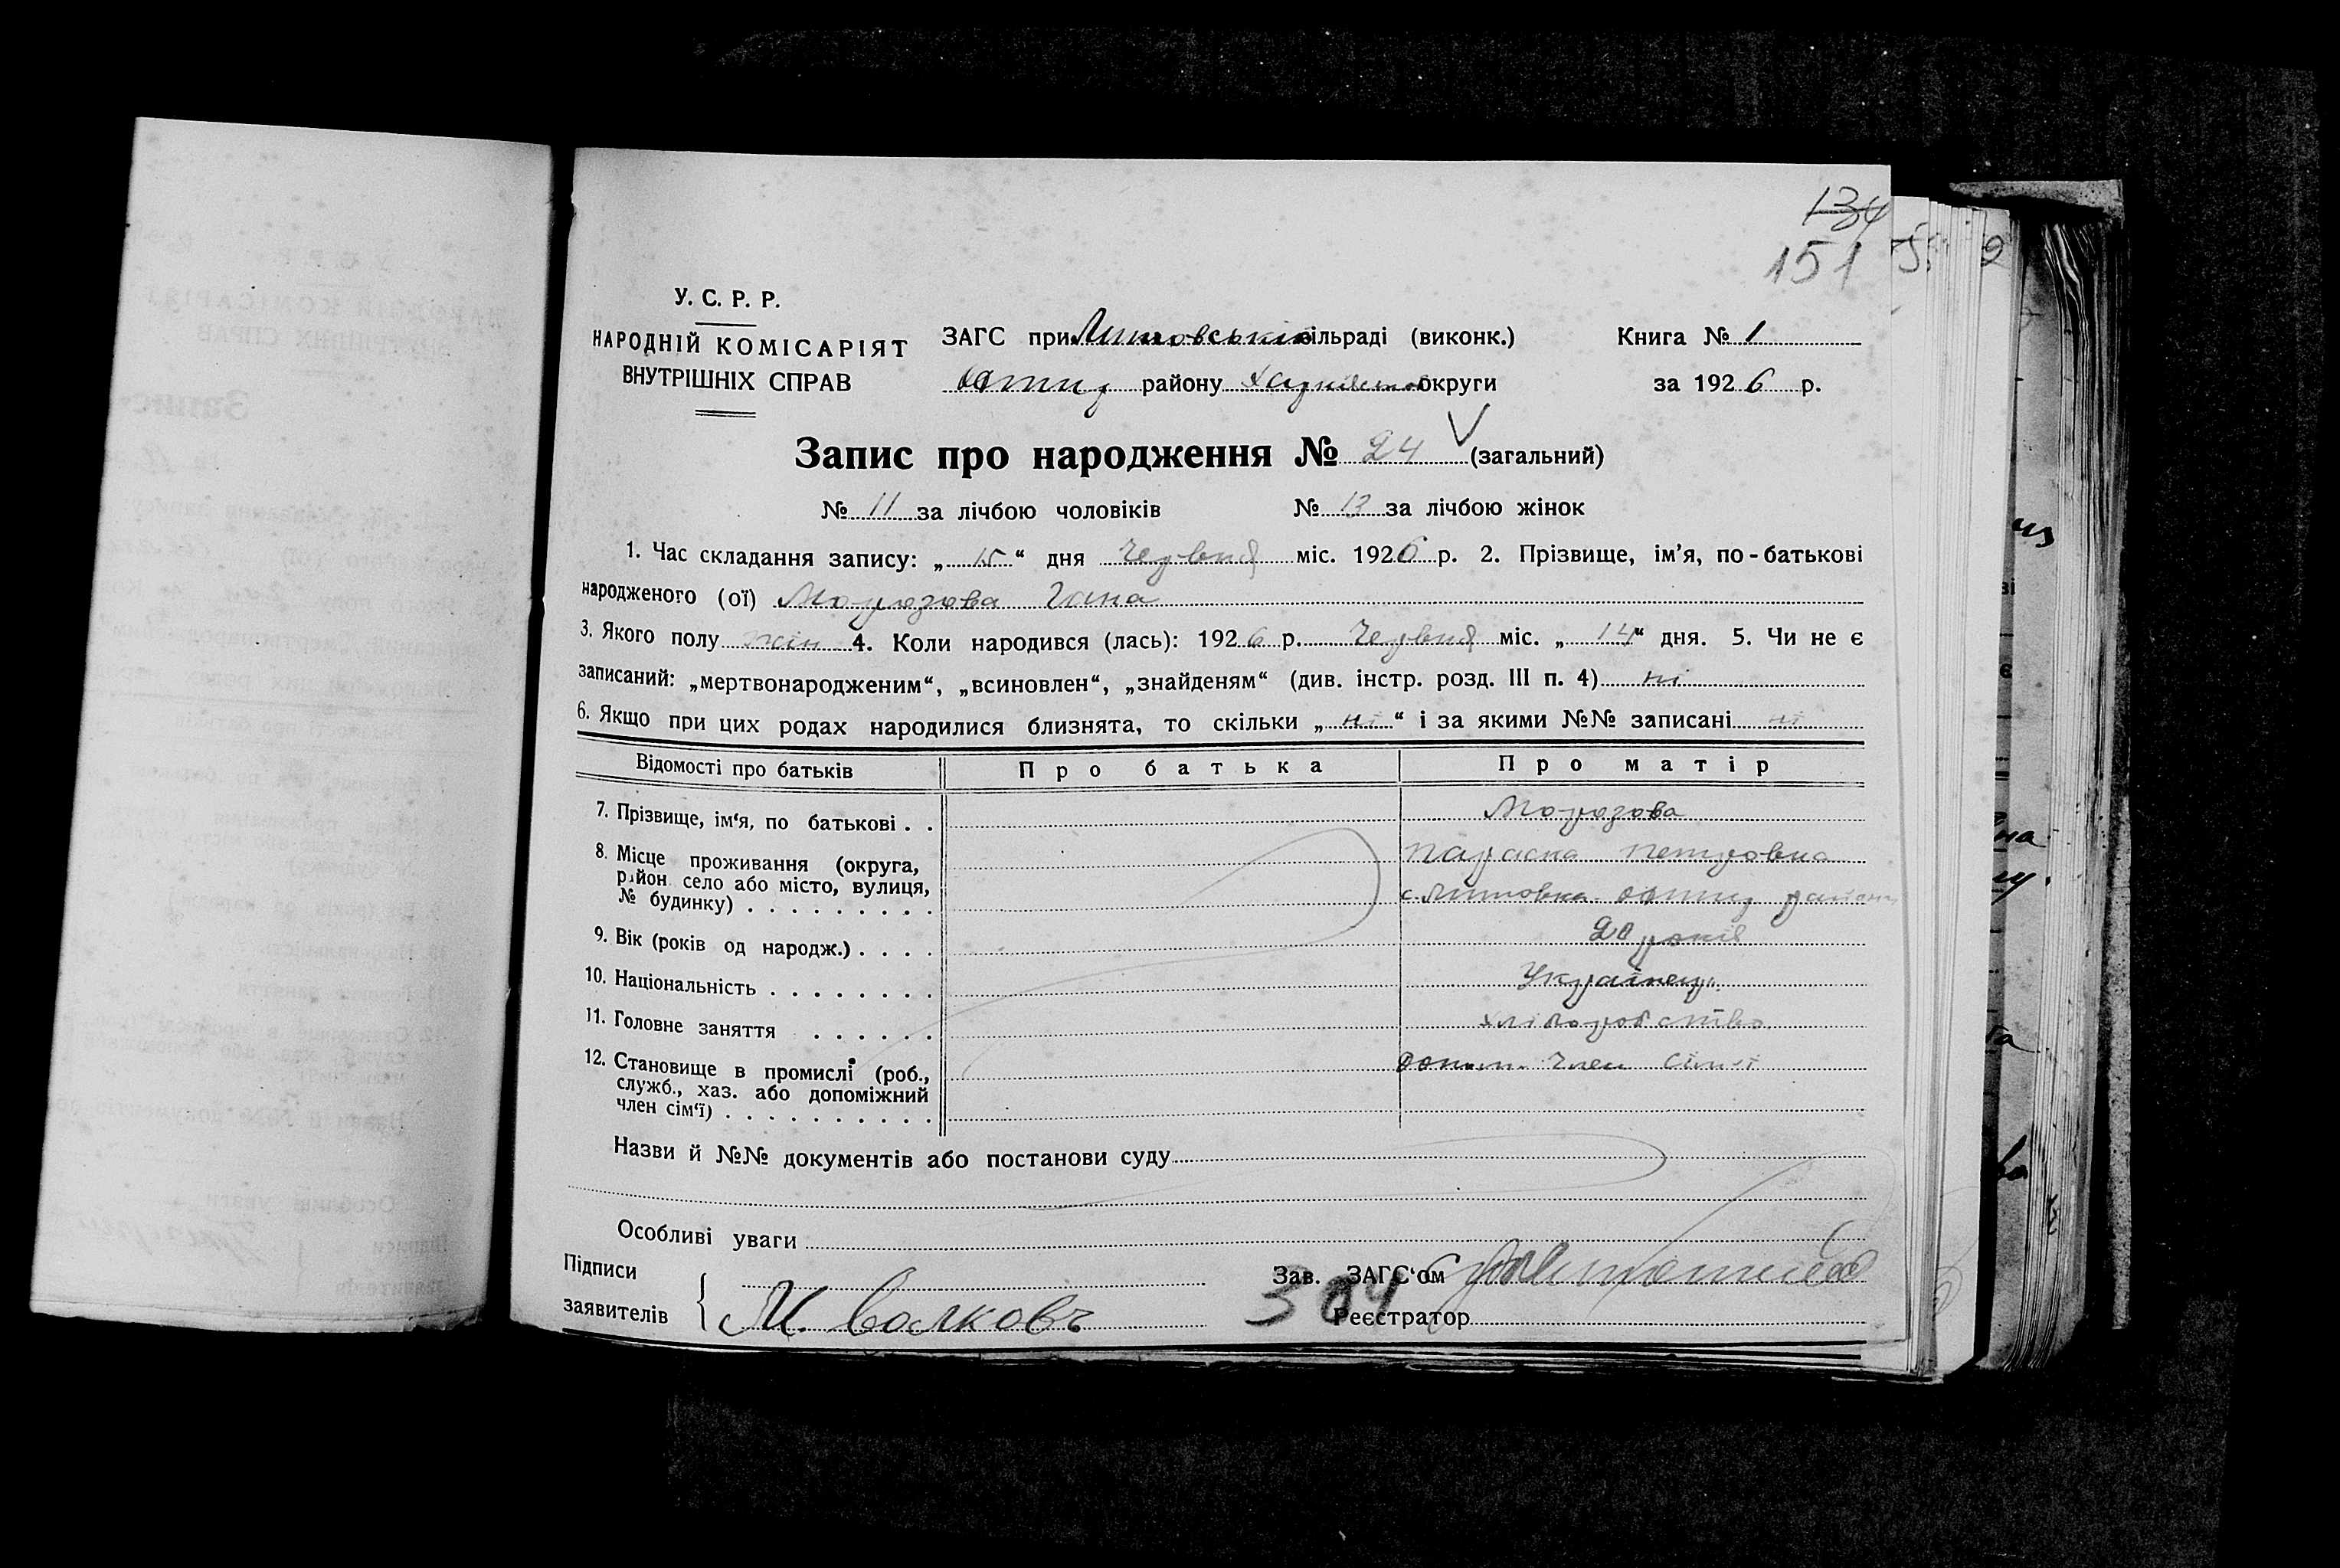 134
151
У. С. Р. Р.
НАРОДНІЙ КОМІСАРІЯТ
ВНУТРІШНІХ СПРАВ
ЗАГС при Литовській сільраді (виконк.)
Охтир району Харківської округи
Книга № 1
за 1926 р.
Запис про народження № 24 (загальний)
№ 11 за лічбою чоловіків № 13 за лічбою жінок
1. Час складання запису: „ 15 “ дня Червня міс. 1926 р. 2. Прізвище, ім’я, по-батькові
народженого (ої) Морозова Гана
3. Якого полу жін 4. Коли народився (лась): 1926 р. Червня міс. „ 14 “ дня. 5. Чи не є
записаний: „мертвонародженим“, „всиновлен“, „знайденям“ (див. інстр. розд. III п. 4) ні
6. Якщо при цих родах народилися близнята, то скільки „ ні “ і за якими №№ записані ні
Відомості про батьків Про батька Про матір
7. Прізвище, ім‘я, по батькові . . Морозова
8. Місце проживання (округа, Параска Петровна
район село або місто, вулиця, с. Литовка Охтир району
№ будинку) . . . . . . . . .
9. Вік (років од народж.) . . . . 20 років
10. Національність . . . . . . . . Українец
11. Головне заняття . . . . . . хліборобство
12. Становище в промислі (роб., допом. член сім'ї
служб., хаз. або допоміжний
член сім‘ї) . . . . . . . . . .
Назви й №№ документів або постанови суду
Особливі уваги
Підписи
заявителів
М. Волковъ
Зав. ЗАГС‘ом
304
Реєстратор